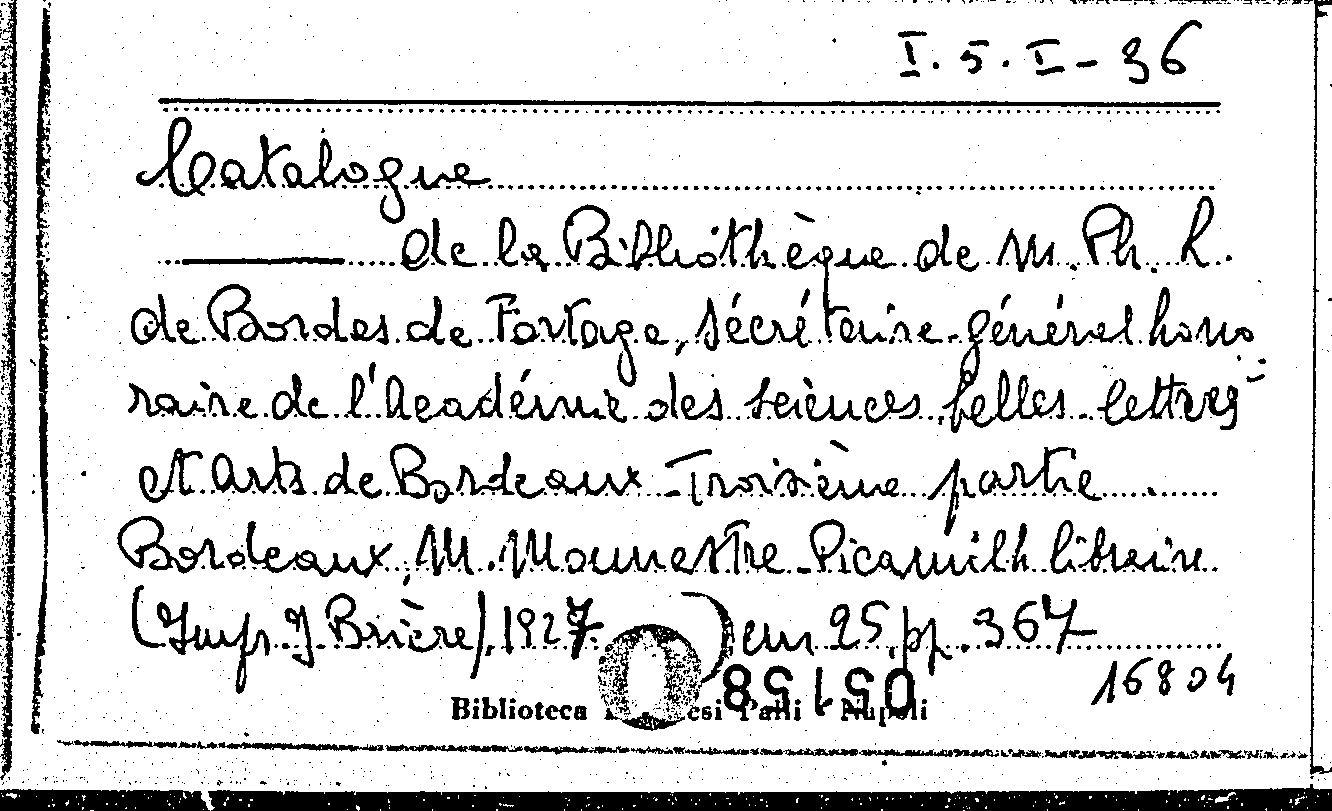 I.5.I-36
Catalogue
de la Bibliothèque de M. Ph. L.
de Bordes de Fortage, sécrétaire-général hono
raire de l'Académie des sciences, belles-lettres
et Arts de Bordeaux - Troisième partie
Bordeaux, M. Mounastre-Picamilh libraire
(Impr. J Brière), 1927 cm 25, pp. 367
16804
05158
Biblioteca Napoli